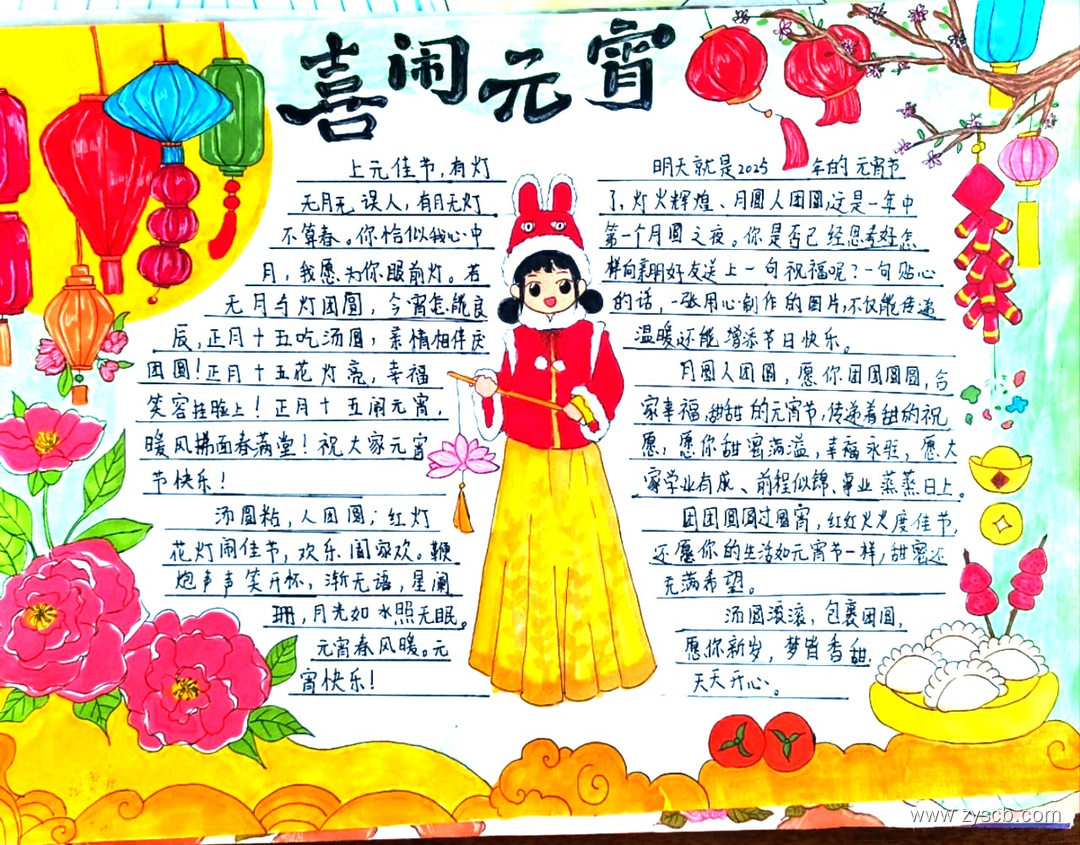 喜闹元宵
上元佳节,有灯
无月无误人,有月无灯
不算春。你恰似我心中
月,我愿为你眼前灯。若
无月与灯团圆,今宵怎能良
辰,正月十五吃汤圆,亲情相伴庆
团圆!正月十五花灯亮,幸福
笑容挂脸上!正月十五闹元宵,
暖风拂面春满堂!祝大家元宵
节快乐!
汤圆粘,人团圆;红灯
花灯闹佳节,欢乐、阖家欢。鞭
炮声声笑开怀,渐无语,星阑
珊,月光如水照无眠。
元宵春风暖。元
宵快乐!
明天就是2025年的元宵节
了,灯火辉煌、月圆人团圆,这是一年中
第一个月圆之夜。你是否已经思考好怎
样向亲朋好友送上一句祝福呢?一句贴心
的话,一张用心制作的图片,不仅能传递
温暖还能增添节日快乐。
月圆人团圆,愿你团团圆圆,合
家幸福,甜甜的元宵节,传递着甜的祝
愿,愿你甜蜜满溢,幸福永驻,愿大
家学业有成、前程似锦、事业蒸蒸日上。
团团圆圆过圆宵,红红火火度佳节,
还愿你的生活如元宵节一样,甜蜜还
充满希望。
汤圆滚滚,包裹团圆,
愿你新岁,梦皆香甜,
天天开心。
www.zyscb.com